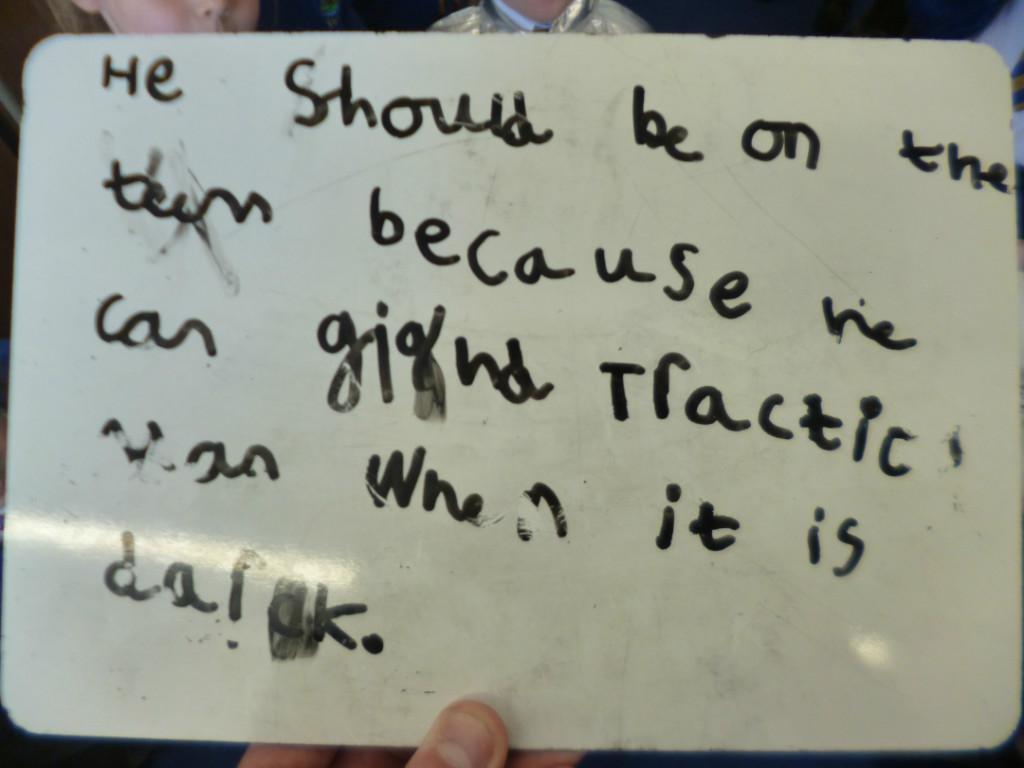 He Should be on the
team because he
can
Tractic
man When it is
dark.